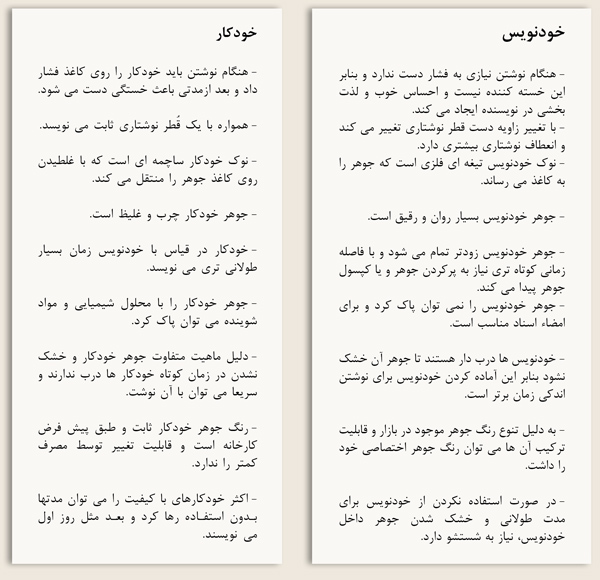 خودنویس
- هنگام نوشتن نیازی به فشار دست ندارد و بنابر
این خسته کننده نیست و احساس خوب و لذت
بخشی در نویسنده ایجاد می کند.
- با تغییر زاویه دست قطر نوشتاری تغییر می کند
و انعطاف نوشتاری بیشتری دارد.
- نوک خودنویس تیغه ای فلزی است که جوهر را
به کاغذ می رساند.
- جوهر خودنویس بسیار روان و رقیق است.
- جوهر خودنویس زودتر تمام می شود و با فاصله
زمانی کوتاه تری نیاز به پرکردن جوهر و یا کپسول
جوهر پیدا می کند.
- جوهر خودنویس را نمی توان پاک کرد و برای
امضاء اسناد مناسب است.
- خودنویس ها درب دار هستند تا جوهر آن خشک
نشود بنابر این آماده کردن خودنویس برای نوشتن
اندکی زمان برتر است.
- به دلیل تنوع رنگ جوهر موجود در بازار و قابلیت
ترکیب آن ها می توان رنگ جوهر اختصاصی خود
را داشت.
- در صورت استفاده نکردن از خودنویس برای
مدت طولانی و خشک شدن جوهر داخل
خودنویس، نیاز به شستشو دارد.
خودکار
- هنگام نوشتن باید خودکار را روی کاغذ فشار
داد و بعد ازمدتی باعث خستگی دست می شود.
- همواره با یک قُطر نوشتاری ثابت می نویسد.
- نوک خودکار ساچمه ای است که با غلطیدن
روی کاغذ جوهر را منتقل می کند.
- جوهر خودکار چرب و غلیظ است.
- خودکار در قیاس با خودنویس زمان بسیار
طولانی تری می نویسد.
- جوهر خودکار را با محلول شیمیایی و مواد
شوینده می توان پاک کرد.
- دلیل ماهیت متفاوت جوهر خودکار و خشک
نشدن در زمان کوتاه خودکار ها درب ندارند و
سریعا می توان با آن نوشت.
- رنگ جوهر خودکار ثابت و طبق پیش فرض
کارخانه است و قابلیت تغییر توسط مصرف
کمتر را ندارد.
- اکثر خودکارهای با کیفیت را می توان مدتها
بـدون استفـاده رها کرد و بعـد مثل روز اول
می نویسند.